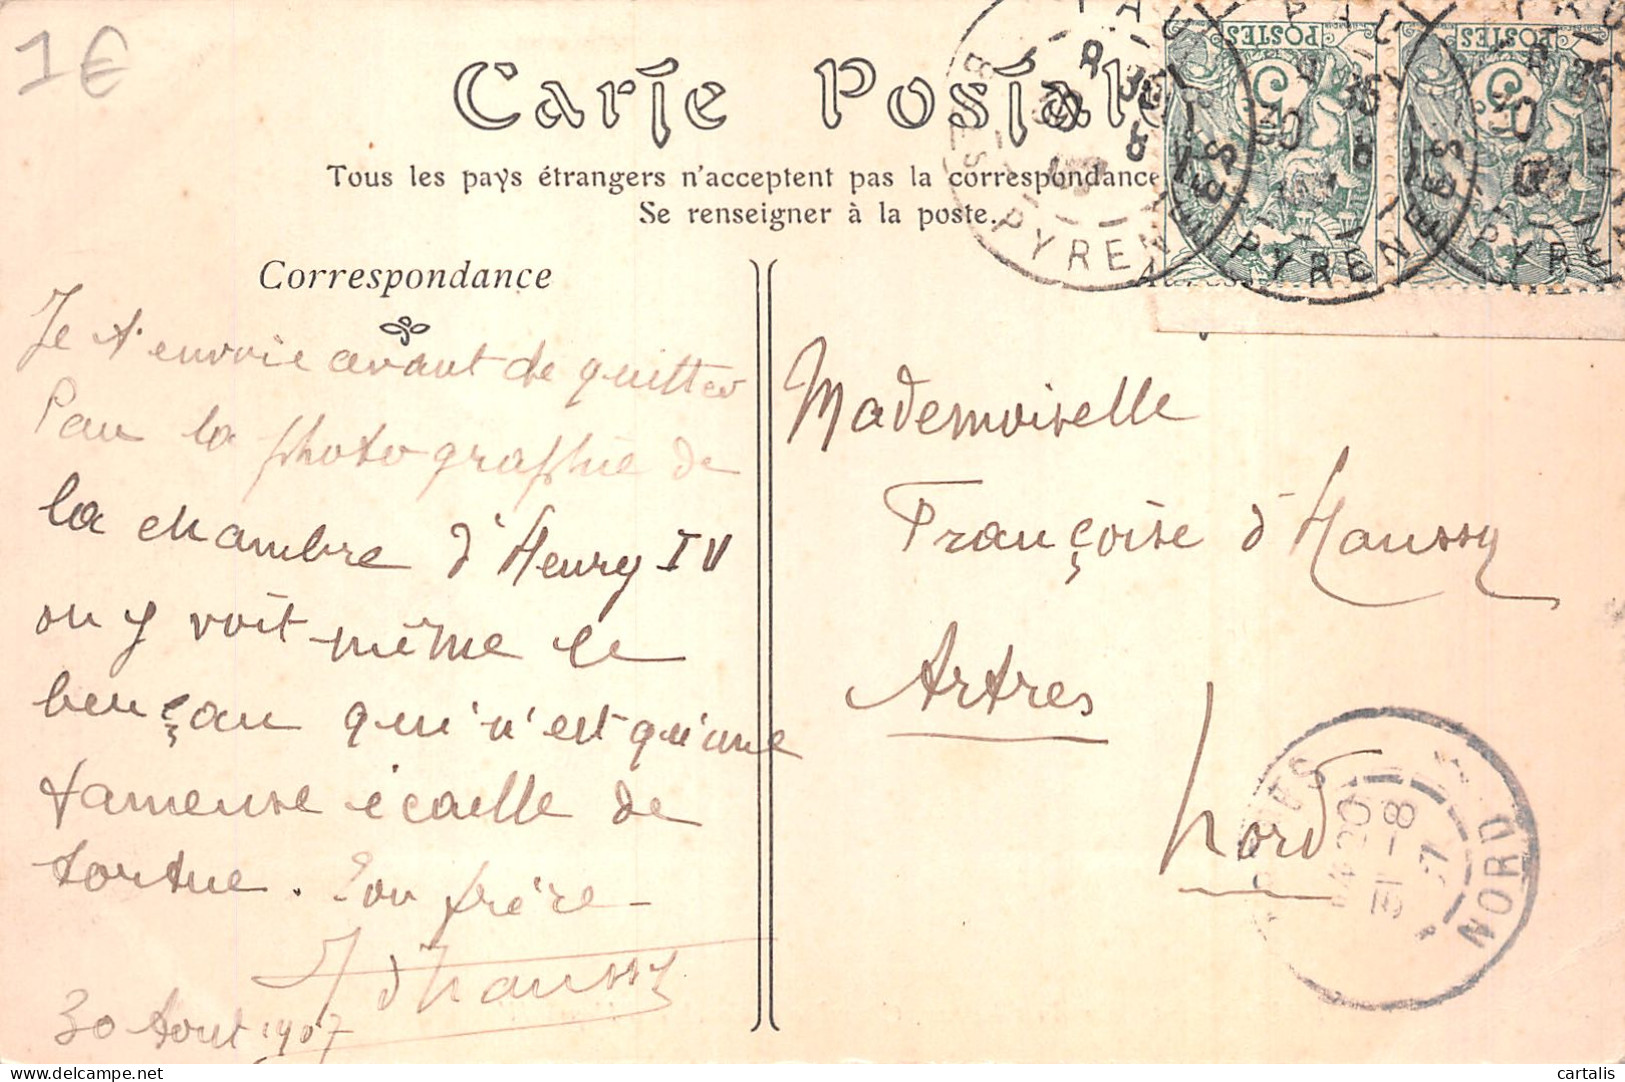 1€
Carte Postale
Tous les pays étrangers n'acceptent pas la correspondance
Se renseigner à la poste.
POSTES
POSTES
5
5
PAU
BSES PYRENEES
8 35
30
8
Correspondance
Je t'envoie avant de quitter
Pau la photographie de
la chambre d'Henry IV
on y voit même le
berçeau qui n'est qu'une
fameuse écaille de
tortue. Ton frère
d'Haussy
30 Aout 1907
Mademoiselle
Françoise d'Haussy
Artres
Nord
NORD
31 - 8
07
cartalis
delcampe.net